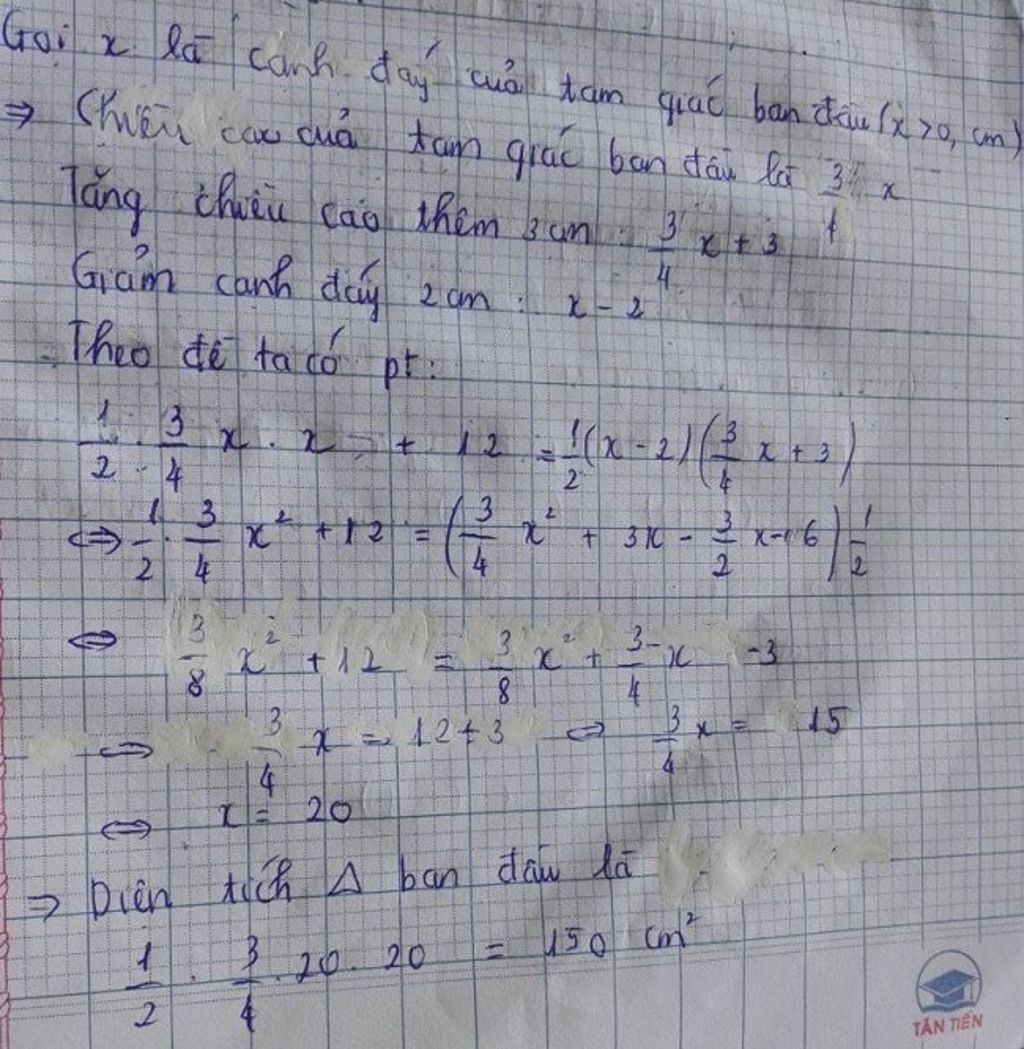 Gọi x là cạnh đáy của tam giác ban đầu (x > 0, cm)
⇒ Chiều cao của tam giác ban đầu là 3/4 x
Tăng chiều cao thêm 3cm : 3/4 x + 3
Giảm cạnh đáy 2cm : x - 2
Theo đề ta có pt:
1/2 . 3/4 x . x + 12 = 1/2 (x - 2)(3/4 x + 3)
⇔ 1/2 . 3/4 x² + 12 = (3/4 x² + 3x - 3/2 x - 6) 1/2
⇔ 3/8 x² + 12 = 3/8 x² + 3/4 x - 3
⇔ 3/4 x = 12 + 3 ⇔ 3/4 x = 15
⇔ x = 20
⇒ Diện tích Δ ban đầu là
1/2 . 3/4 . 20 . 20 = 150 cm²
TÂN TIẾN